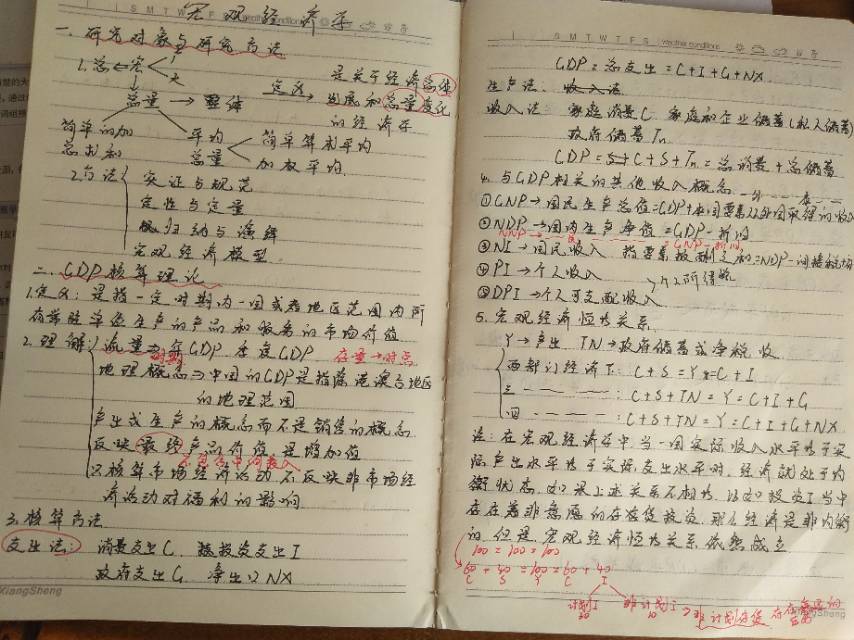 宏观经济学
一.研究对象与研究方法
1.总⇐宏
大
总量 → 整体
定义
是关于经济总体
发展和总量变化
的经济学
简单的加
总求和
平均
总量
简单算术平均
加权平均.
2.方法
实证与规范
定性与定量
归纳与演绎
宏观经济模型
二.GDP核算理论
1.定义:是指一定时期内一国或者地区范围内所
有常驻单位生产的产品和服务的市场价值
2.理解
流量 年GDP.季度GDP
时期
存量→时点
地理概念⇒中国的GDP是指除港澳台地区
的地理范围
产出或生产的概念而不是销售的概念
反映最终产品价值,是增加值
不包含中间投入
只核算市场经济活动,不反映非市场经
济活动对福利的影响
3.核算方法
支出法: 消费支出C 投资支出I
政府支出G 净出口NX
XiangSheng
S M T W T F S weather conditions
GDP=总支出=C+I+G+NX
生产法:
收入法 家庭消费C 家庭和企业储蓄(私人储蓄)
政府储蓄Tn
GDP=C+S+Tn=总消费+总储蓄
4.与GDP相关的其他收入概念
①GNP→国民生产总值=GDP+本国要素从外国取得的收入
②NDP→国内生产净值=GDP-折旧
NNP =GNP-折旧
③NI→国民收入 指要素报酬之和=NDP-间接税
④PI→个人收入
个人所得税
⑤DPI→个人可支配收入
5.宏观经济恒等关系
Y→产出 TN→政府储蓄或净税收
两部门经济下:C+S=Y=C+I
三 :C+S+TN=Y=C+I+G
四 :C+S+TN=Y=C+I+G+NX
注:在宏观经济学中,当一国实际收入水平等于实
际产出水平等于实际支出水平时,经济就处于均
衡状态,如果上述关系不相等,比如投资I当中
存在着非意愿的存货投资,那么经济是非均衡
的,但是,宏观经济恒等关系依然成立
100=100=100
60+40=100=60+40
C S Y C I
计划I
非计划I→非计划存货
XiangSheng